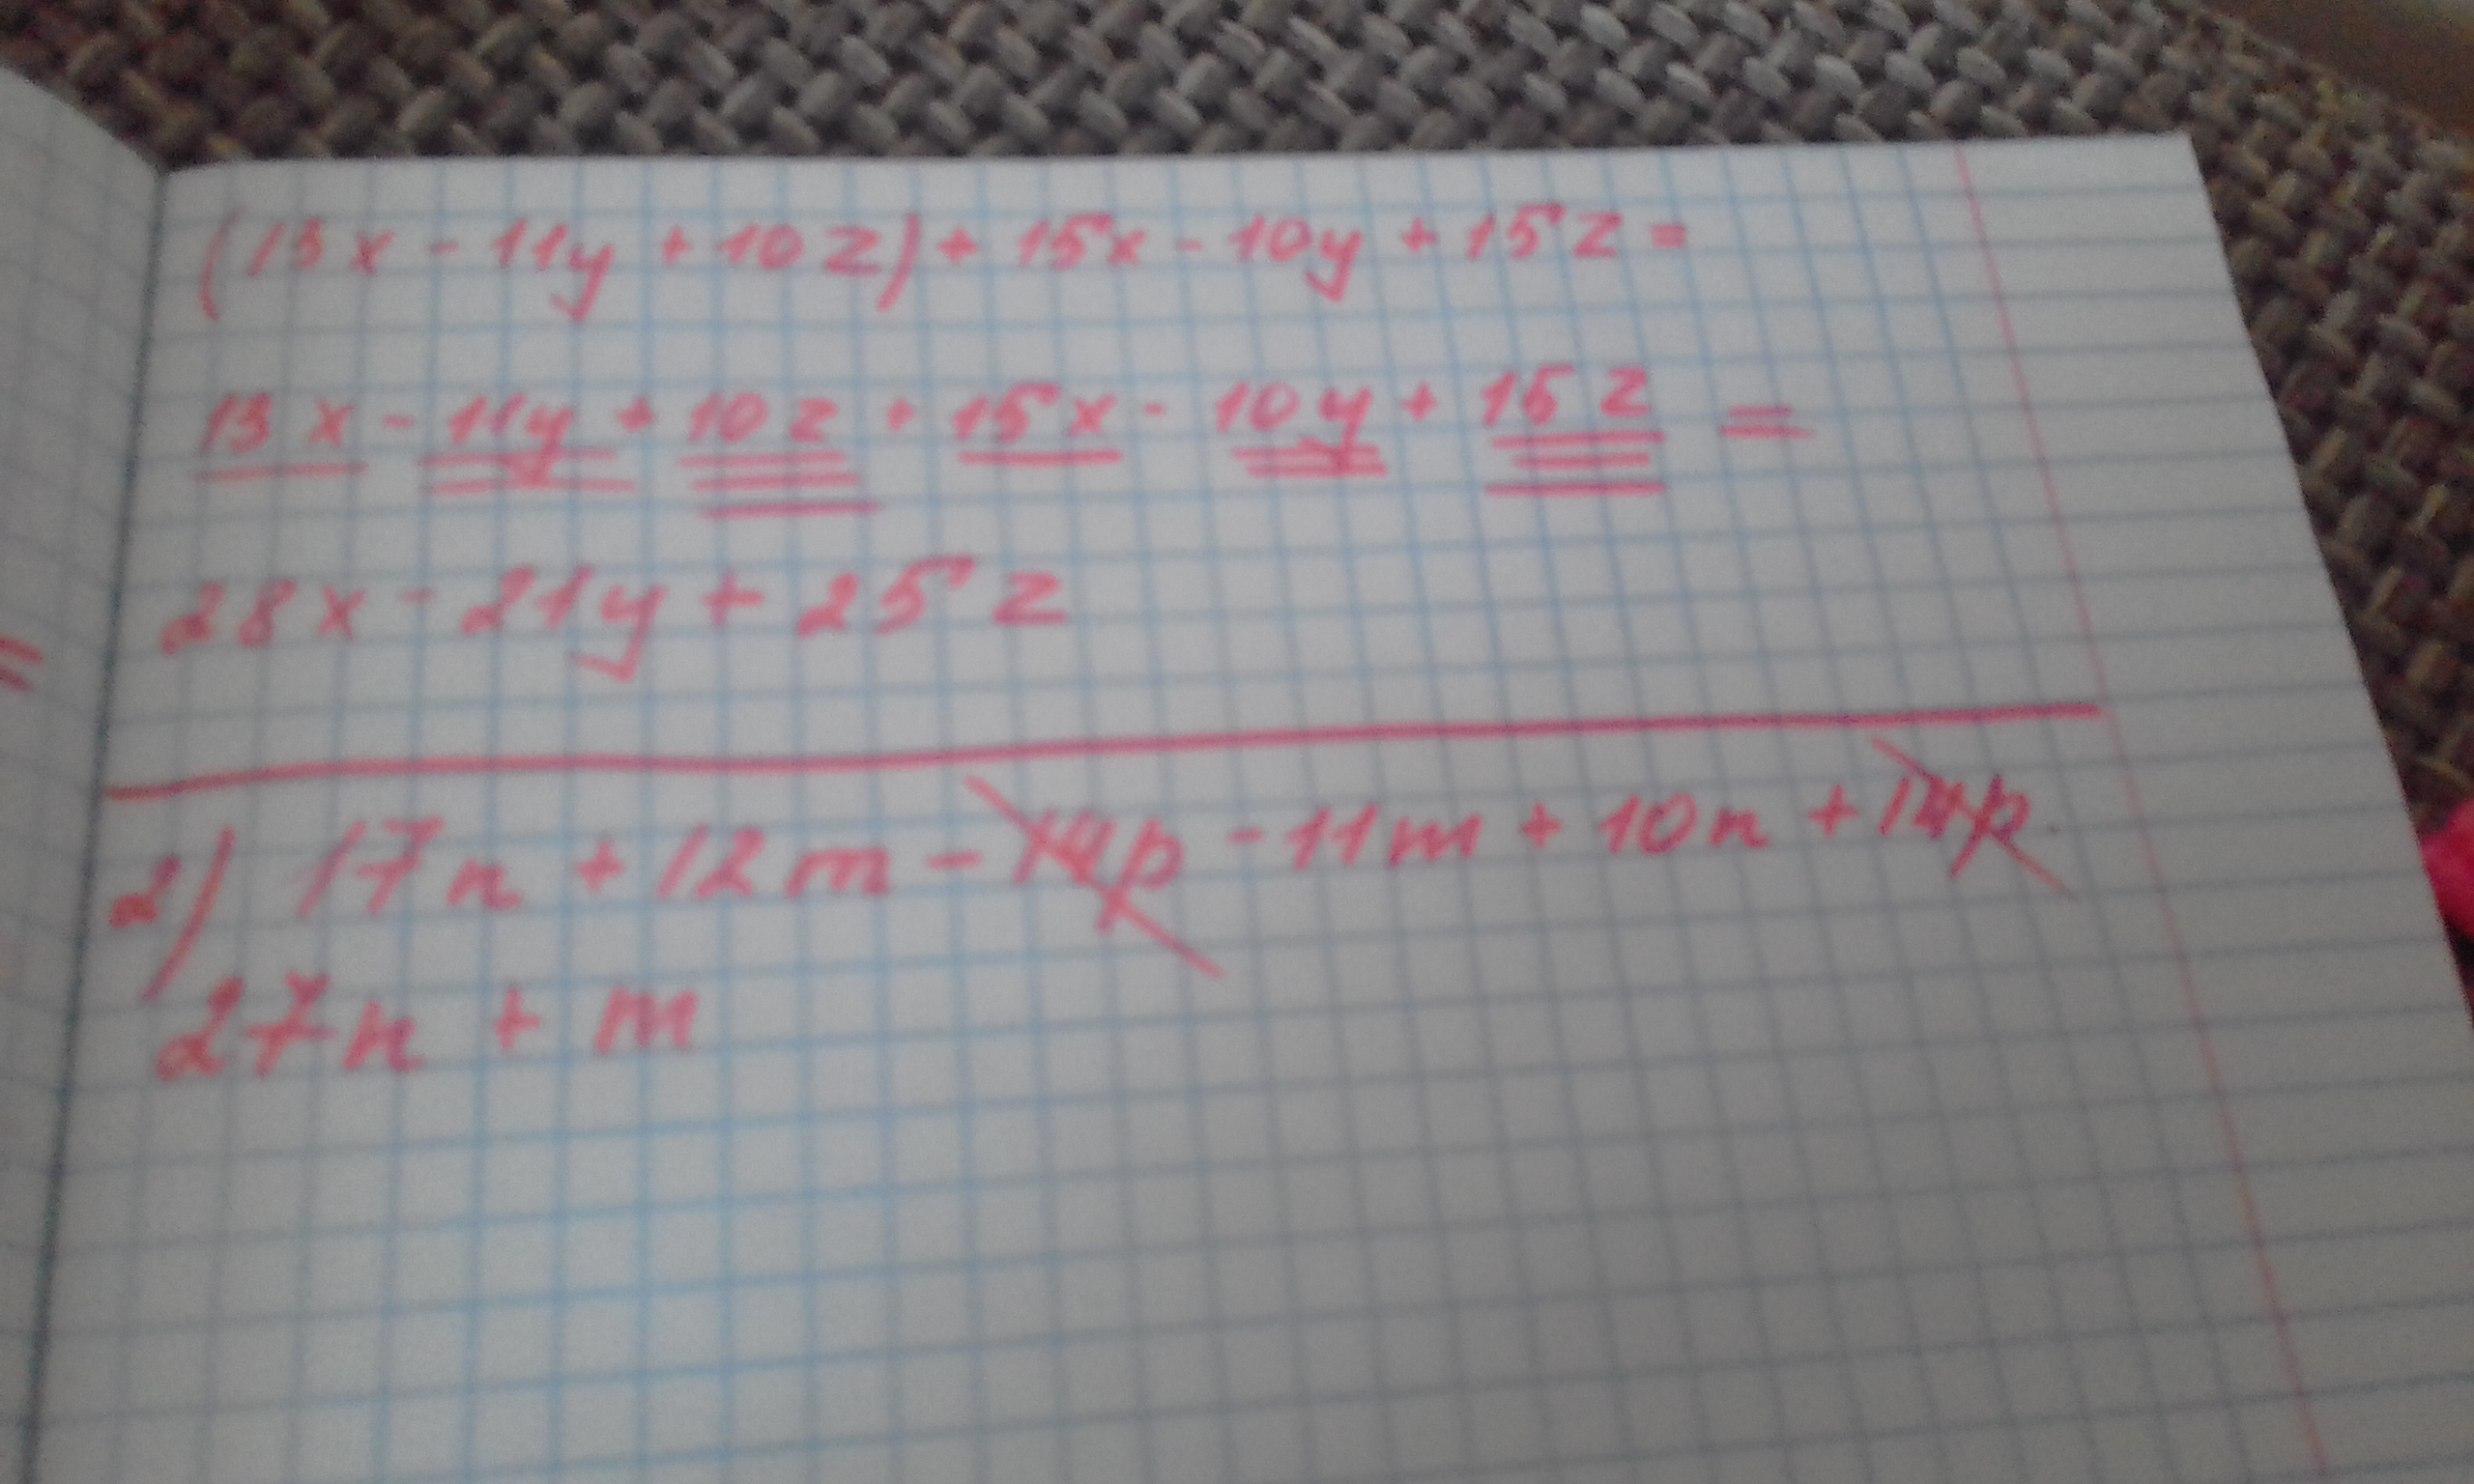 (13x - 11y + 10z) + 15x - 10y + 15z =
13x - 11y + 10z + 15x - 10y + 15z =
28x - 21y + 25z
2) 17n + 12m - 14p - 11m + 10n + 14p
27n + m